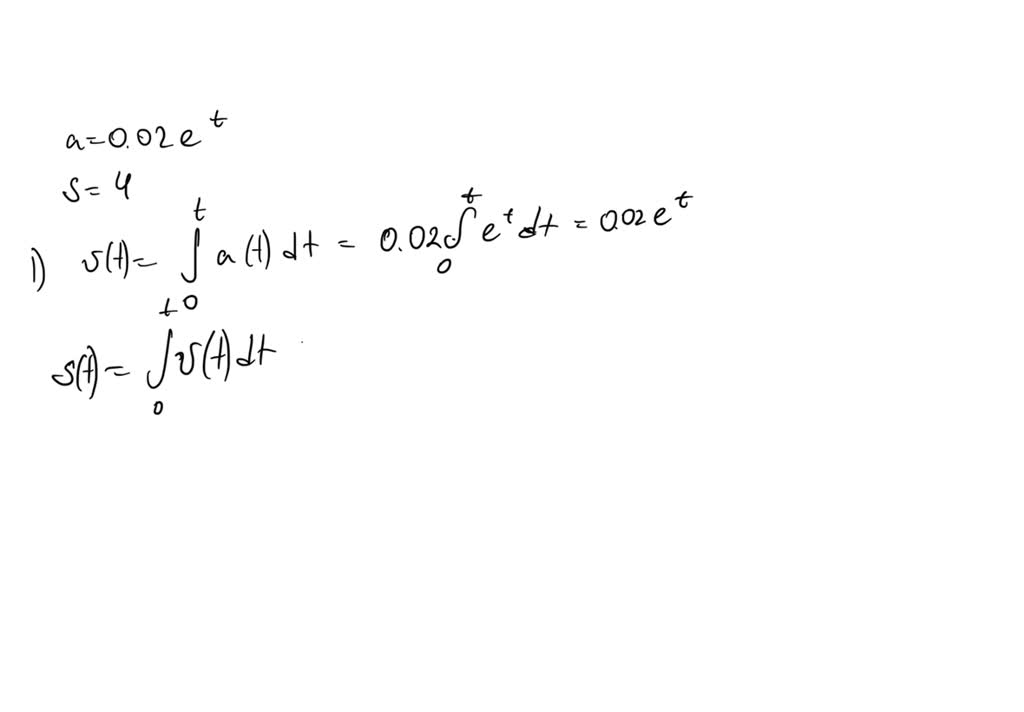 a=0.02e^t
s=4
1) v(t)= ∫_0^t a(t)dt = 0.02∫_0^t e^t dt = 0.02e^t
s(t)= ∫_0^t v(t)dt